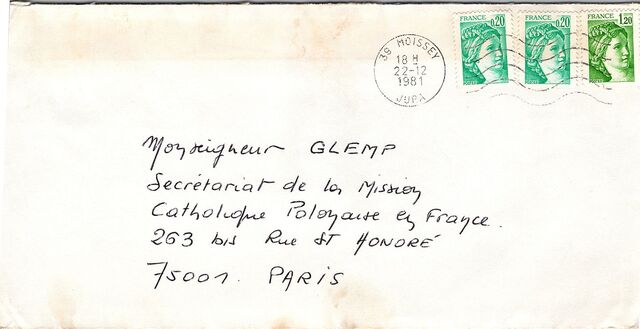 39 MOISSEY
18 H
22-12
1981
JURA
FRANCE 0,20
FRANCE 0,20
FRANCE 1,20
Monseigneur GLEMP
Secrétariat de la Mission
Catholique Polonaise en France.
263 bis Rue ST HONORÉ
75001. PARIS